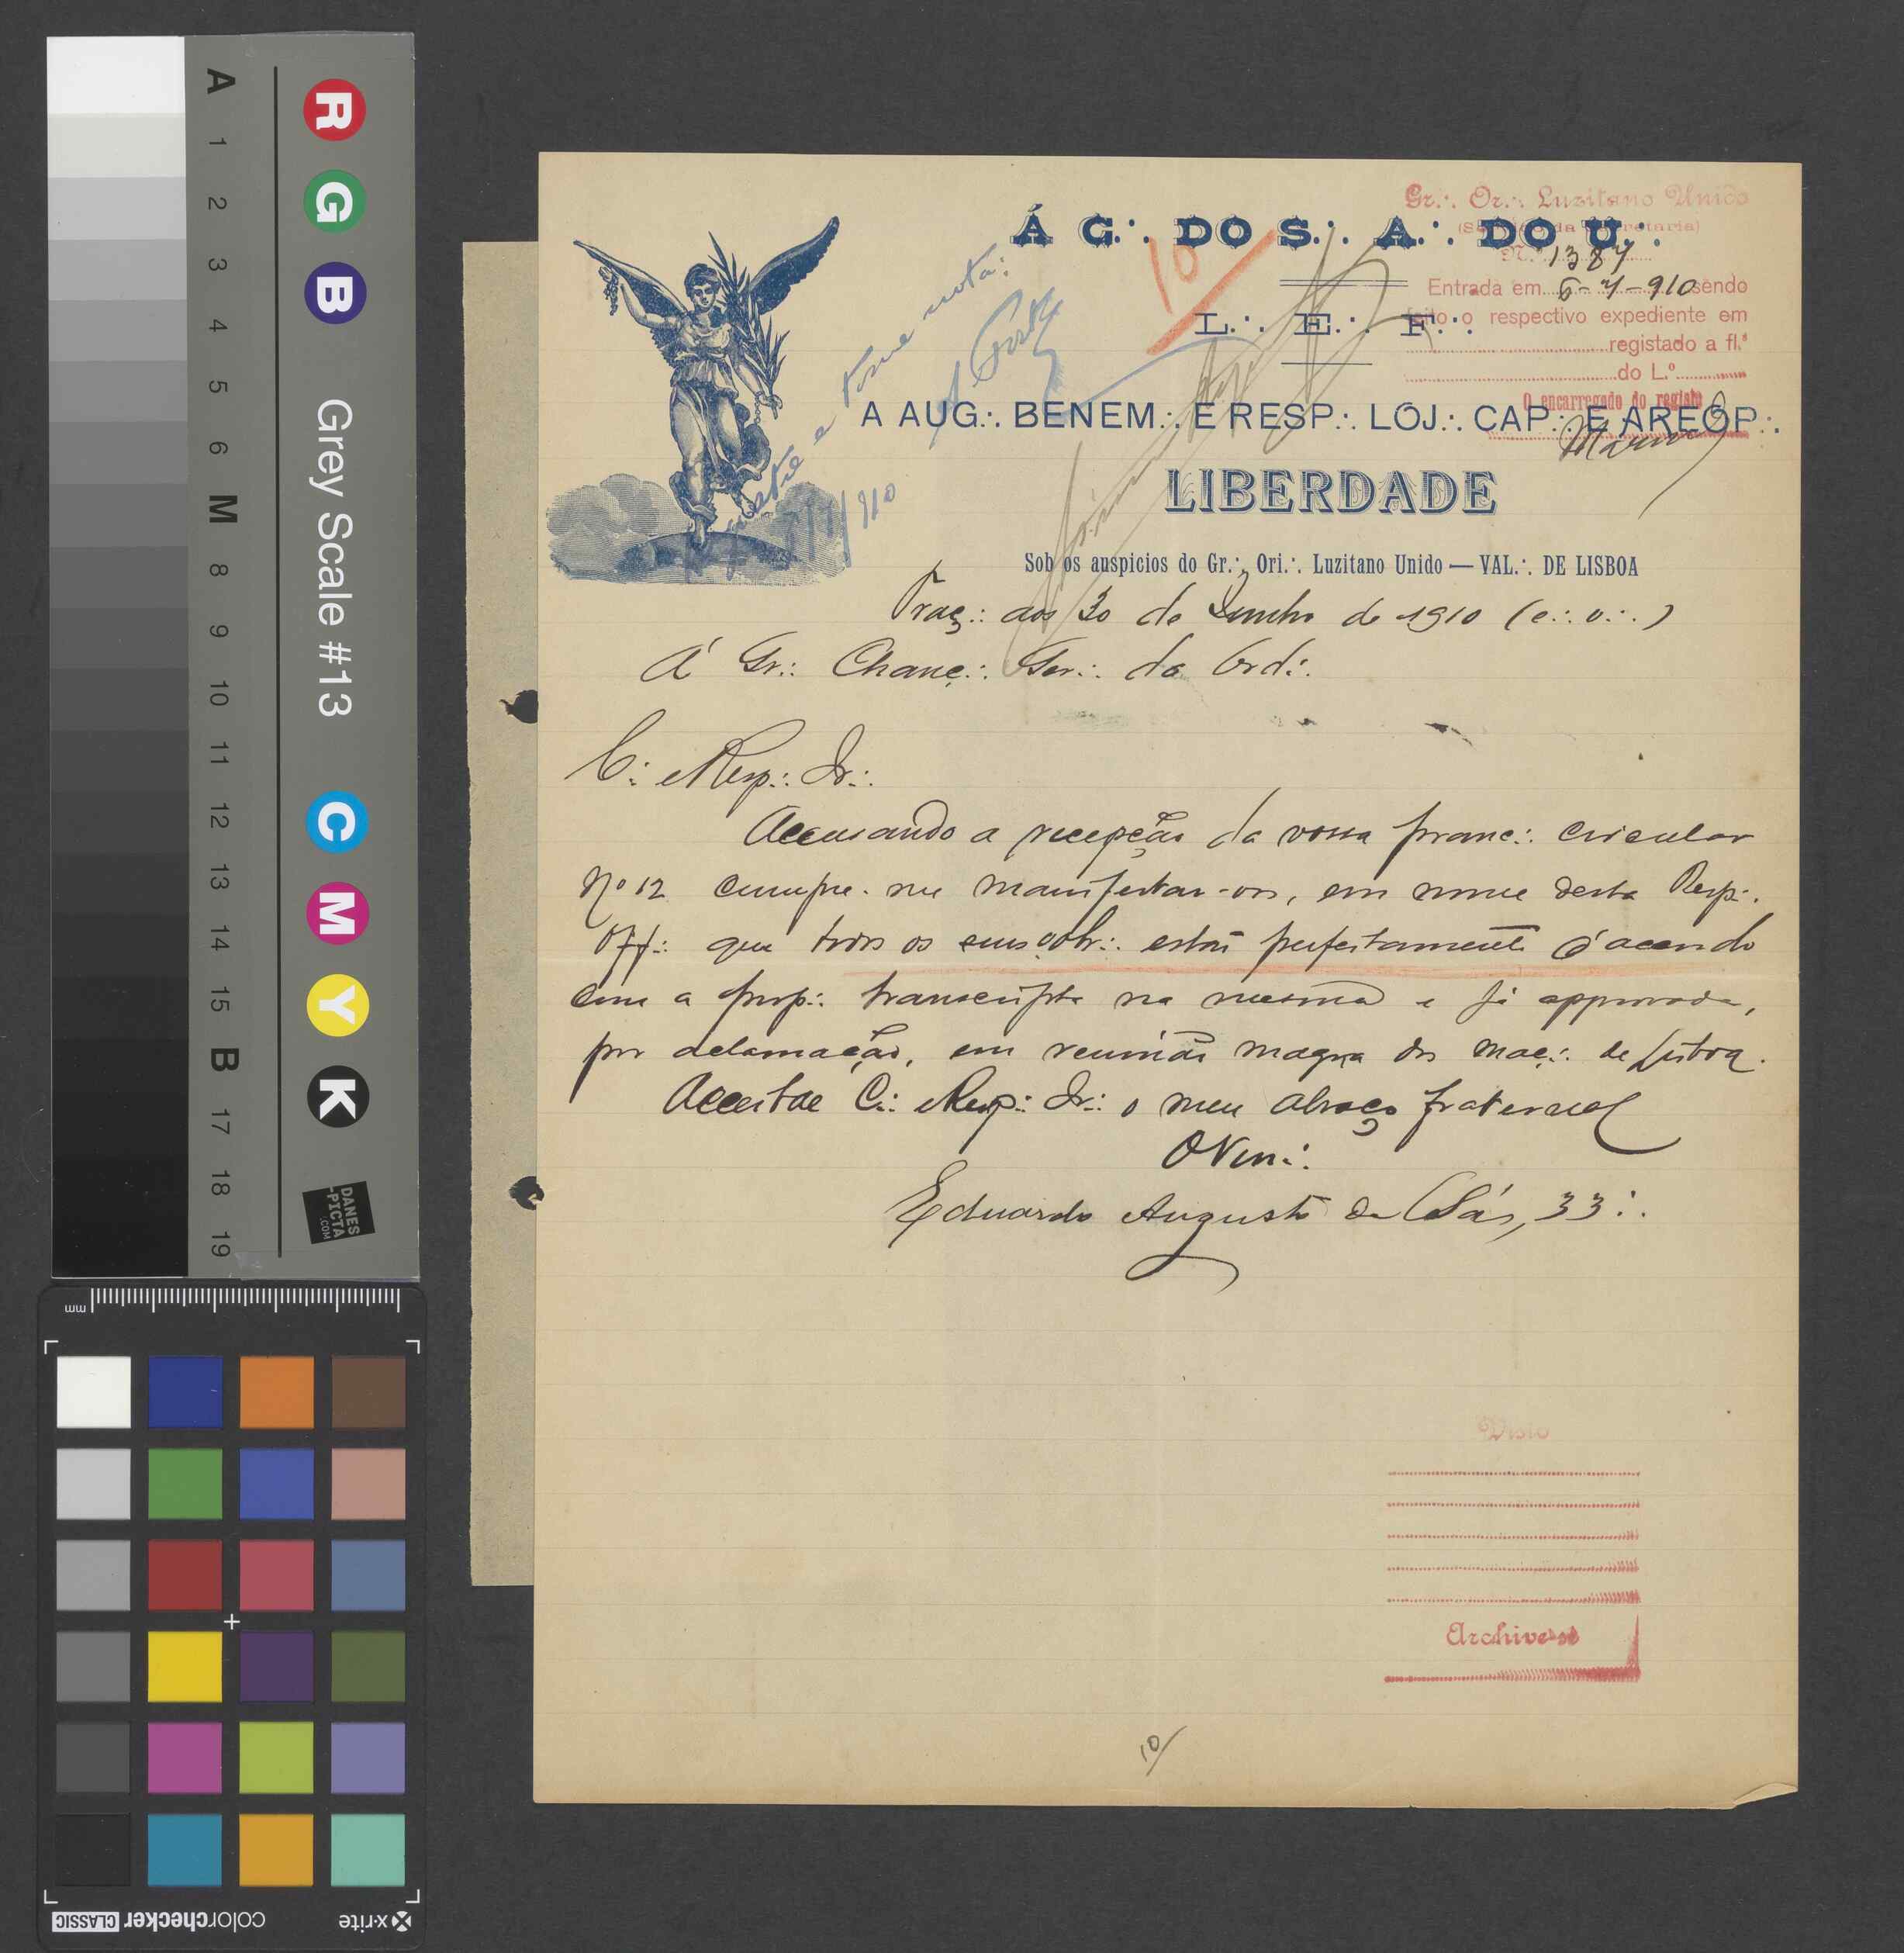 Á G.·. DO S.·. A.·. DO U.·.
L.·. E.·. F.·.
A AUG.·. BENEM.·. E RESP.·. LOJ.·. CAP.·. E AREOP.·.
LIBERDADE
Sob os auspicios do Gr.·. Ori.·. Luzitano Unido — VAL.·. DE LISBOA
Gr.·. Or.·. Luzitano Unido
N.º 1387
Entrada em 6-7-910 sendo
feito o respectivo expediente em
registado a fl.ª
do L.º
O encarregado do registo
10
Registe e tome nota:
7/7/910
Traç.·. aos 30 de Junho de 1910 (e.·. v.·.)
Á Gr.·. Chanc.·. Ger.·. da Ord.·.
C.·. e Resp.·. Ir.·.
Accusando a recepção da vossa pranc.·. circular
Nº 12 cumpre-me manifestar-vos, em nome desta Resp.·.
Off.·. que todos os seus obr.·. estão perfeitamente d'acordo
com a prop.·. transcripta na mesma e já approvada,
por aclamação, em reunião magna dos maç.·. de Lisboa.
Acceitae C.·. e Resp.·. Ir.·. o meu abraço fraternal
O Ven.·.
Eduardo Augusto de Sás, 33.·.
Visto
Archive-se
10
A
1
2
3
4
5
6
M
8
9
10
11
12
13
14
15
B
17
18
19
R G B
Grey Scale #13
C M Y K
DANES
-PICTA
.COM
mm
x-rite
colorchecker CLASSIC